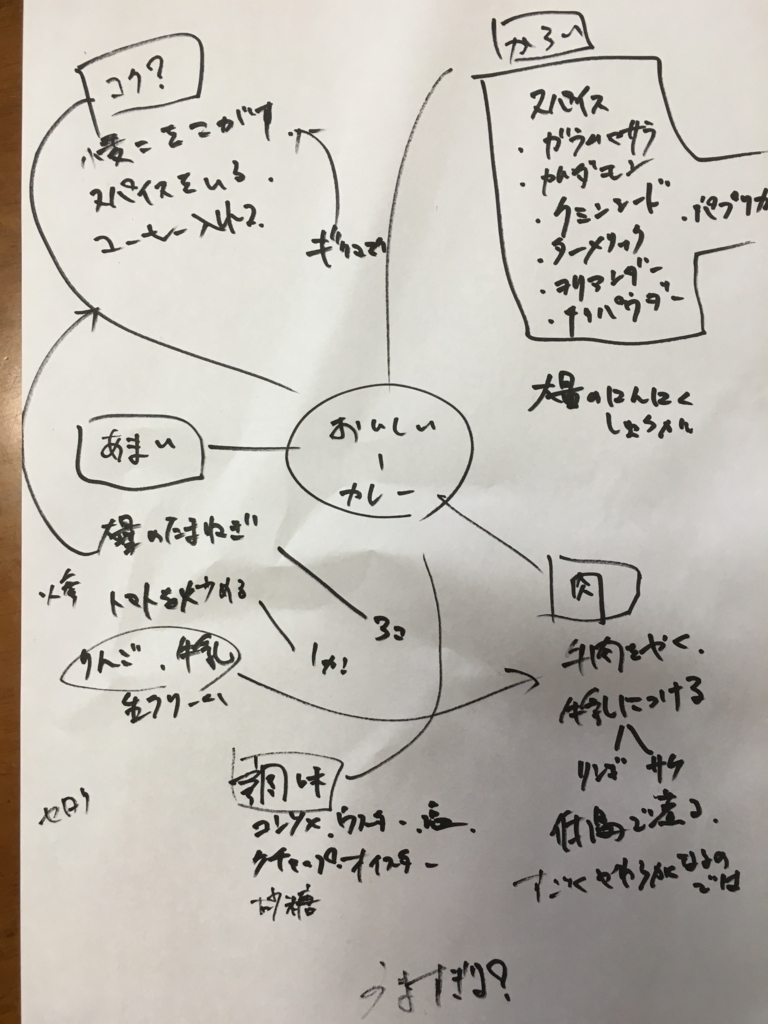 コク?
小麦こをこがす
スパイスをいる.
コーヒー入れる.
からい
スパイス
・ガラムマサラ
・カルダモン
・クミンシード
・パプリカ
・ターメリック
・コリアンダー
・チリパウダー
大量のにんにく
しょうが
おいしい
カレー
あまい
大量のたまねぎ
3コ
トマトを炒める
1カン
りんご、牛乳
生クリーム
セロリ
肉
牛肉をやく、
牛乳につける
リンゴ サケ
低温で煮る、
すごくやわらかになるの
では
調味
コンソメ、ウスター、塩、
ケチャップ、オイスター
砂糖
うますぎる?